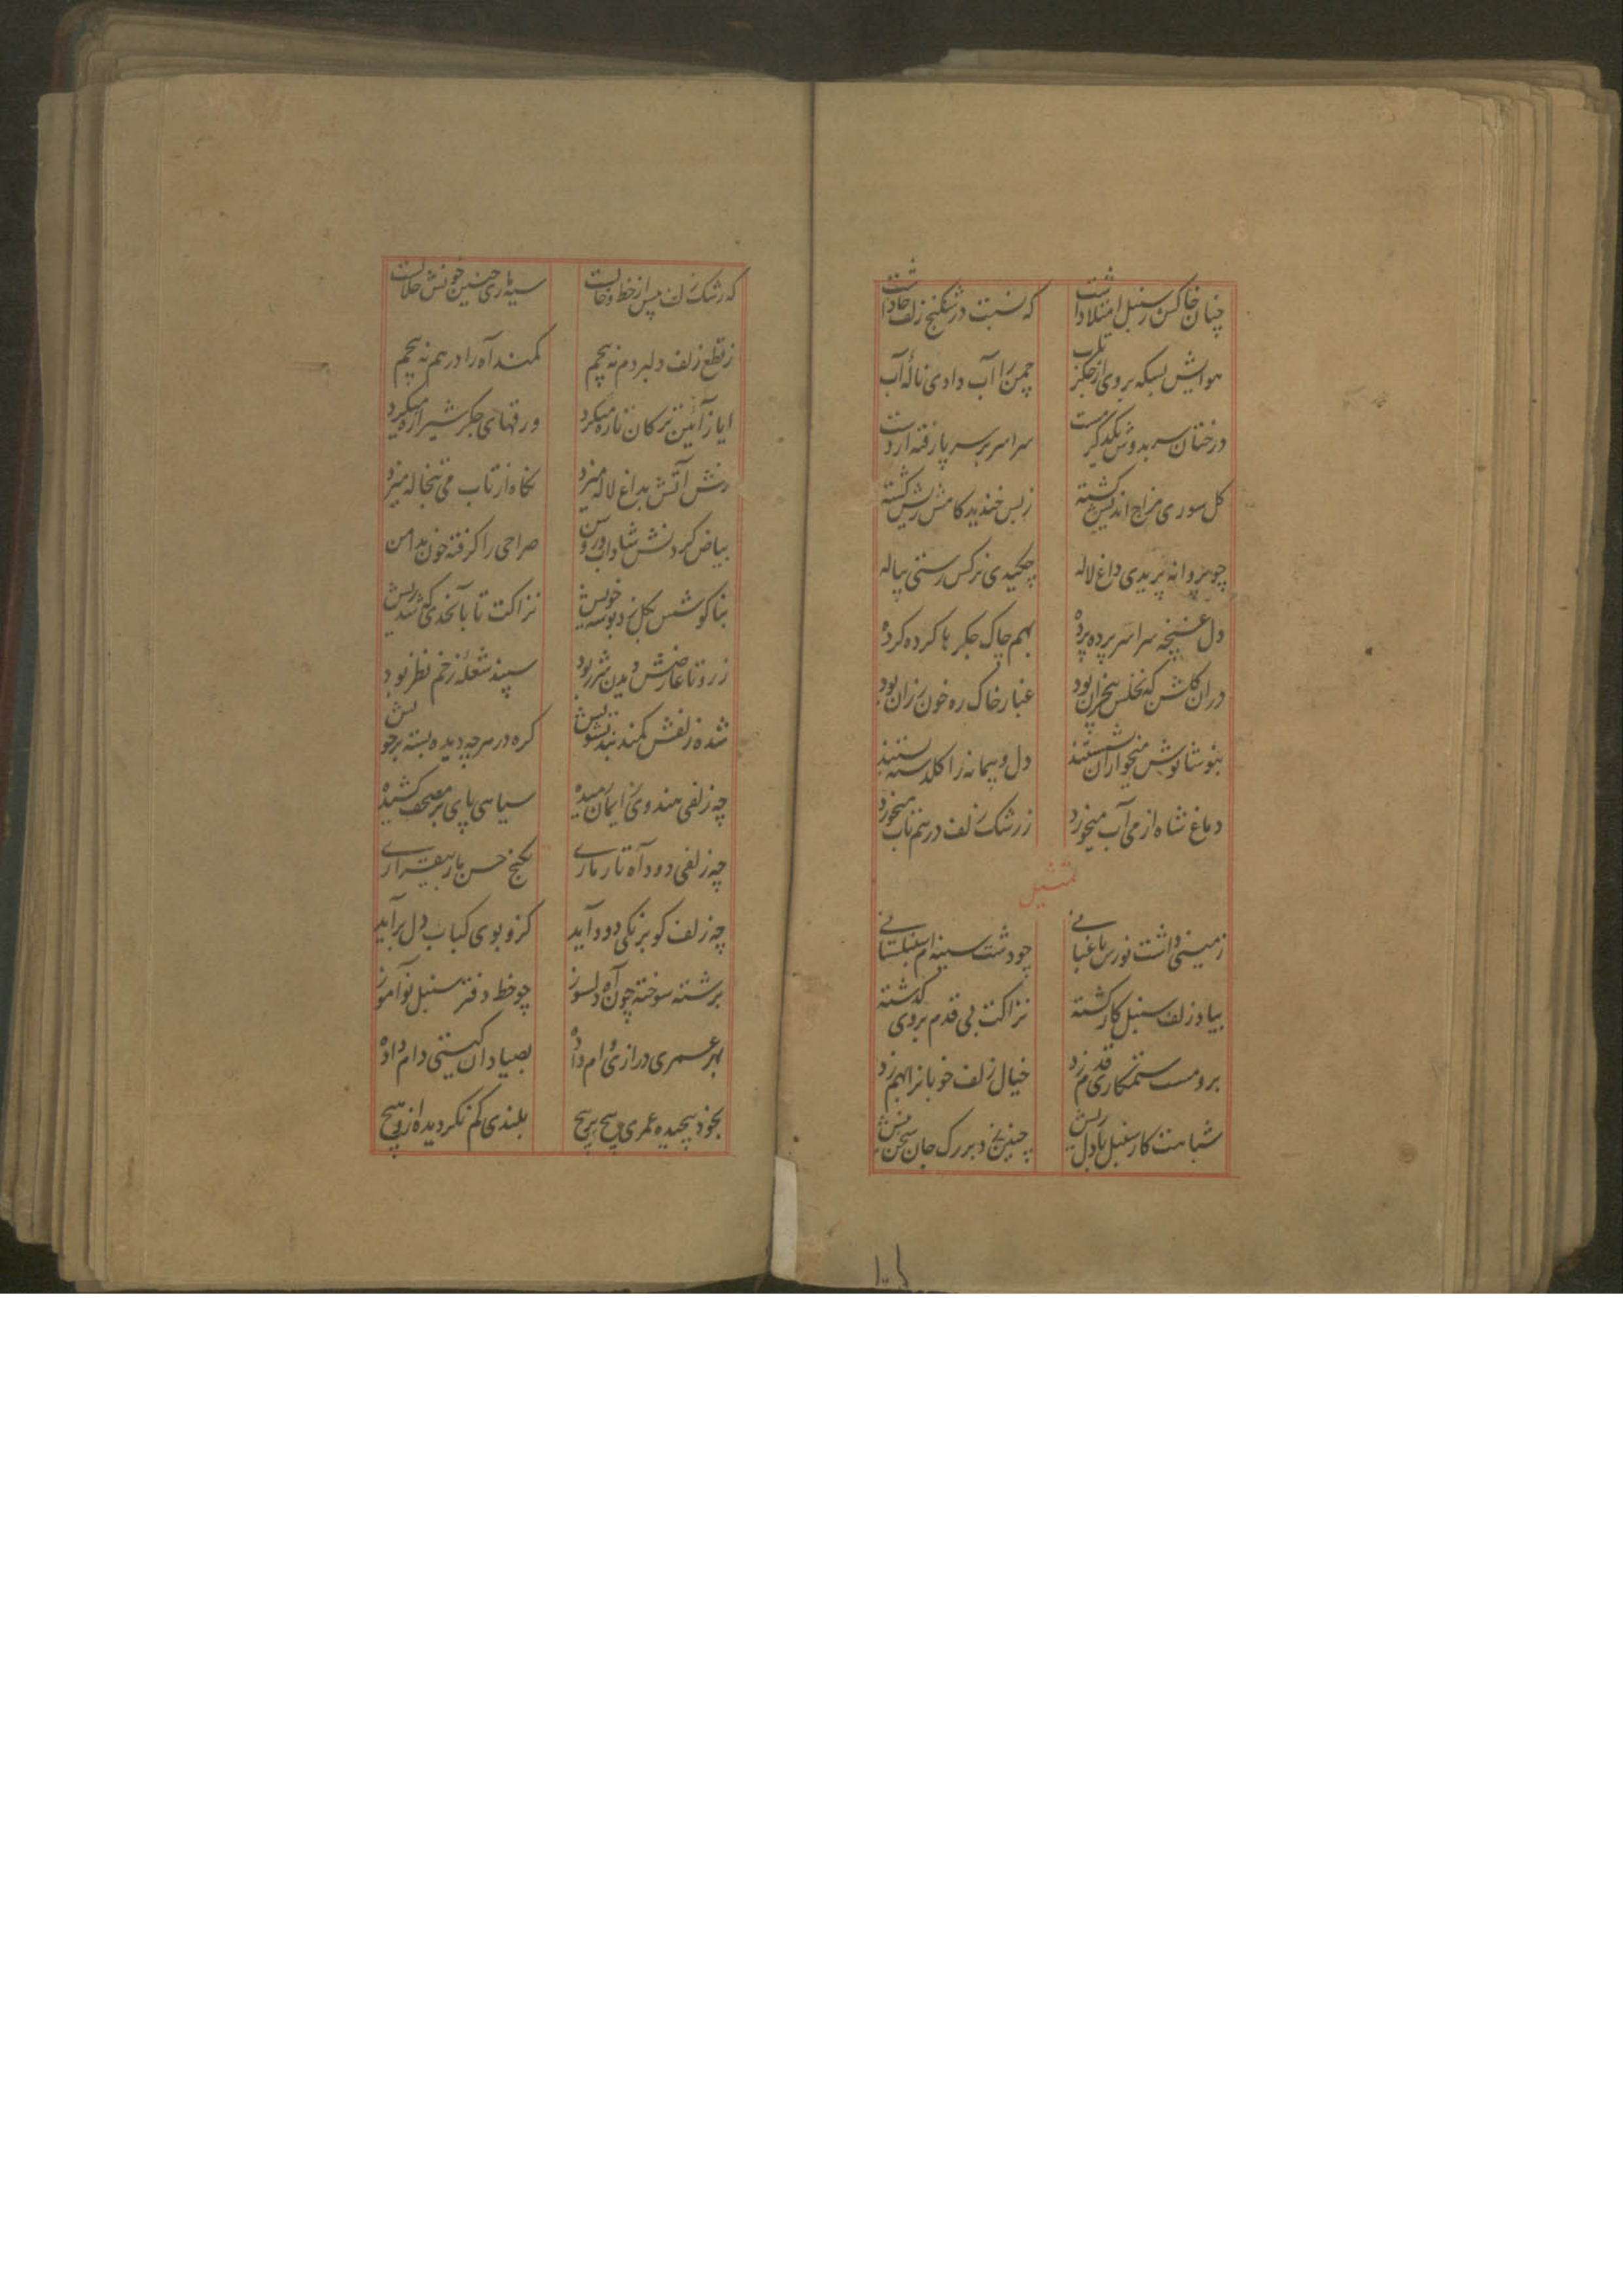 چنان خاکش ز سنبل امتلا داشت که نسبت در شکنج زلف جا داشت
هوایش بسکه بردی از جگر تاب چمن را آب دادی نالهٔ آب
درختان سر بدوش یکدگر مست سراسر بر سر پا رفته از دست
کل سوری مزاج اندیش کشته ز بس خندید کامش ریش کشته
چو پروانه پریدی داغ لاله چکیدی نرکس رستی پیاله
دل غنچه سراسر پرده پرده بهم چاک جکرها کرده کرده
دران کلشن که نخلش بیخزان بود غبار خاک ره خون رزان بود
بنوشانوش میخواران نشستند دل و پیمانه را کلدسته بستند
دماغ شاه از می آب میخورد ز رشک زلف درهم تاب میخورد
تمثیل
زمینی داشت نورس باغبانی چو دشت سینه ام سنبلستانی
بیاد زلف سنبل کار کشته نزاکت بی قدم بروی کذشته
برو مست ستمکاری قدم زد خیال زلف خوبانرا بهم زد
شباهت کار سنبل با دل ریش چنین زد بر رک جان سخن نیش
که رشک زلف پس از خط و خالست سیه ماری چنین خونش حلالست
ز قطع زلف دلبر دم نه پیچم کمند آه را درهم نه پیچم
ایاز آئین ترکان تازه میکرد ورقهای جکر شیرازه میکرد
رخش آتش بداغ لاله میزد نکاه از تاب می تبخاله میزد
بیاض کردنش شاداب و روشن صراحی را کرفته خون بدامن
بناکوشش بکل زد بوسه خویش نزاکت تا بآنحدی که شد ریش
ز رو تا عارضش دیدن شرر بود سپند شعله زخم نظر بود
شده زلفش کمند بند تشویش کره در هرچه دیده بسته بر خویش
چه زلفی هندوی ز ایمان رمیده سیاهی پای بر مصحف کشیده
چه زلفی دود آه تار ماری بکنج حسن مار بیقراری
چه زلف کو برنکی دود آید کزو بوی کباب دل برآید
برشته سوخته چون آه دلسوز چو خط دفتر سنبل نوآموز
بهر عمری درازی وام داده بصیادان کیتی دام داده
بخود پیچیده عمری پیچ بر پیچ بلندی کم نکردیده ازو هیچ